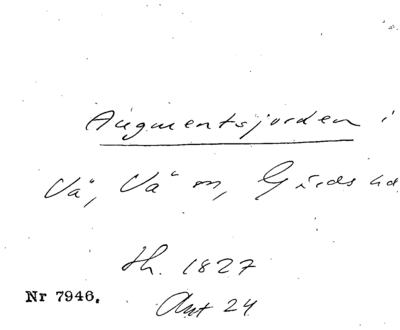 Augmentsjorden i
Vä, Vä sn, Gärds hd,
th. 1827
Nr 7946. Akt 24